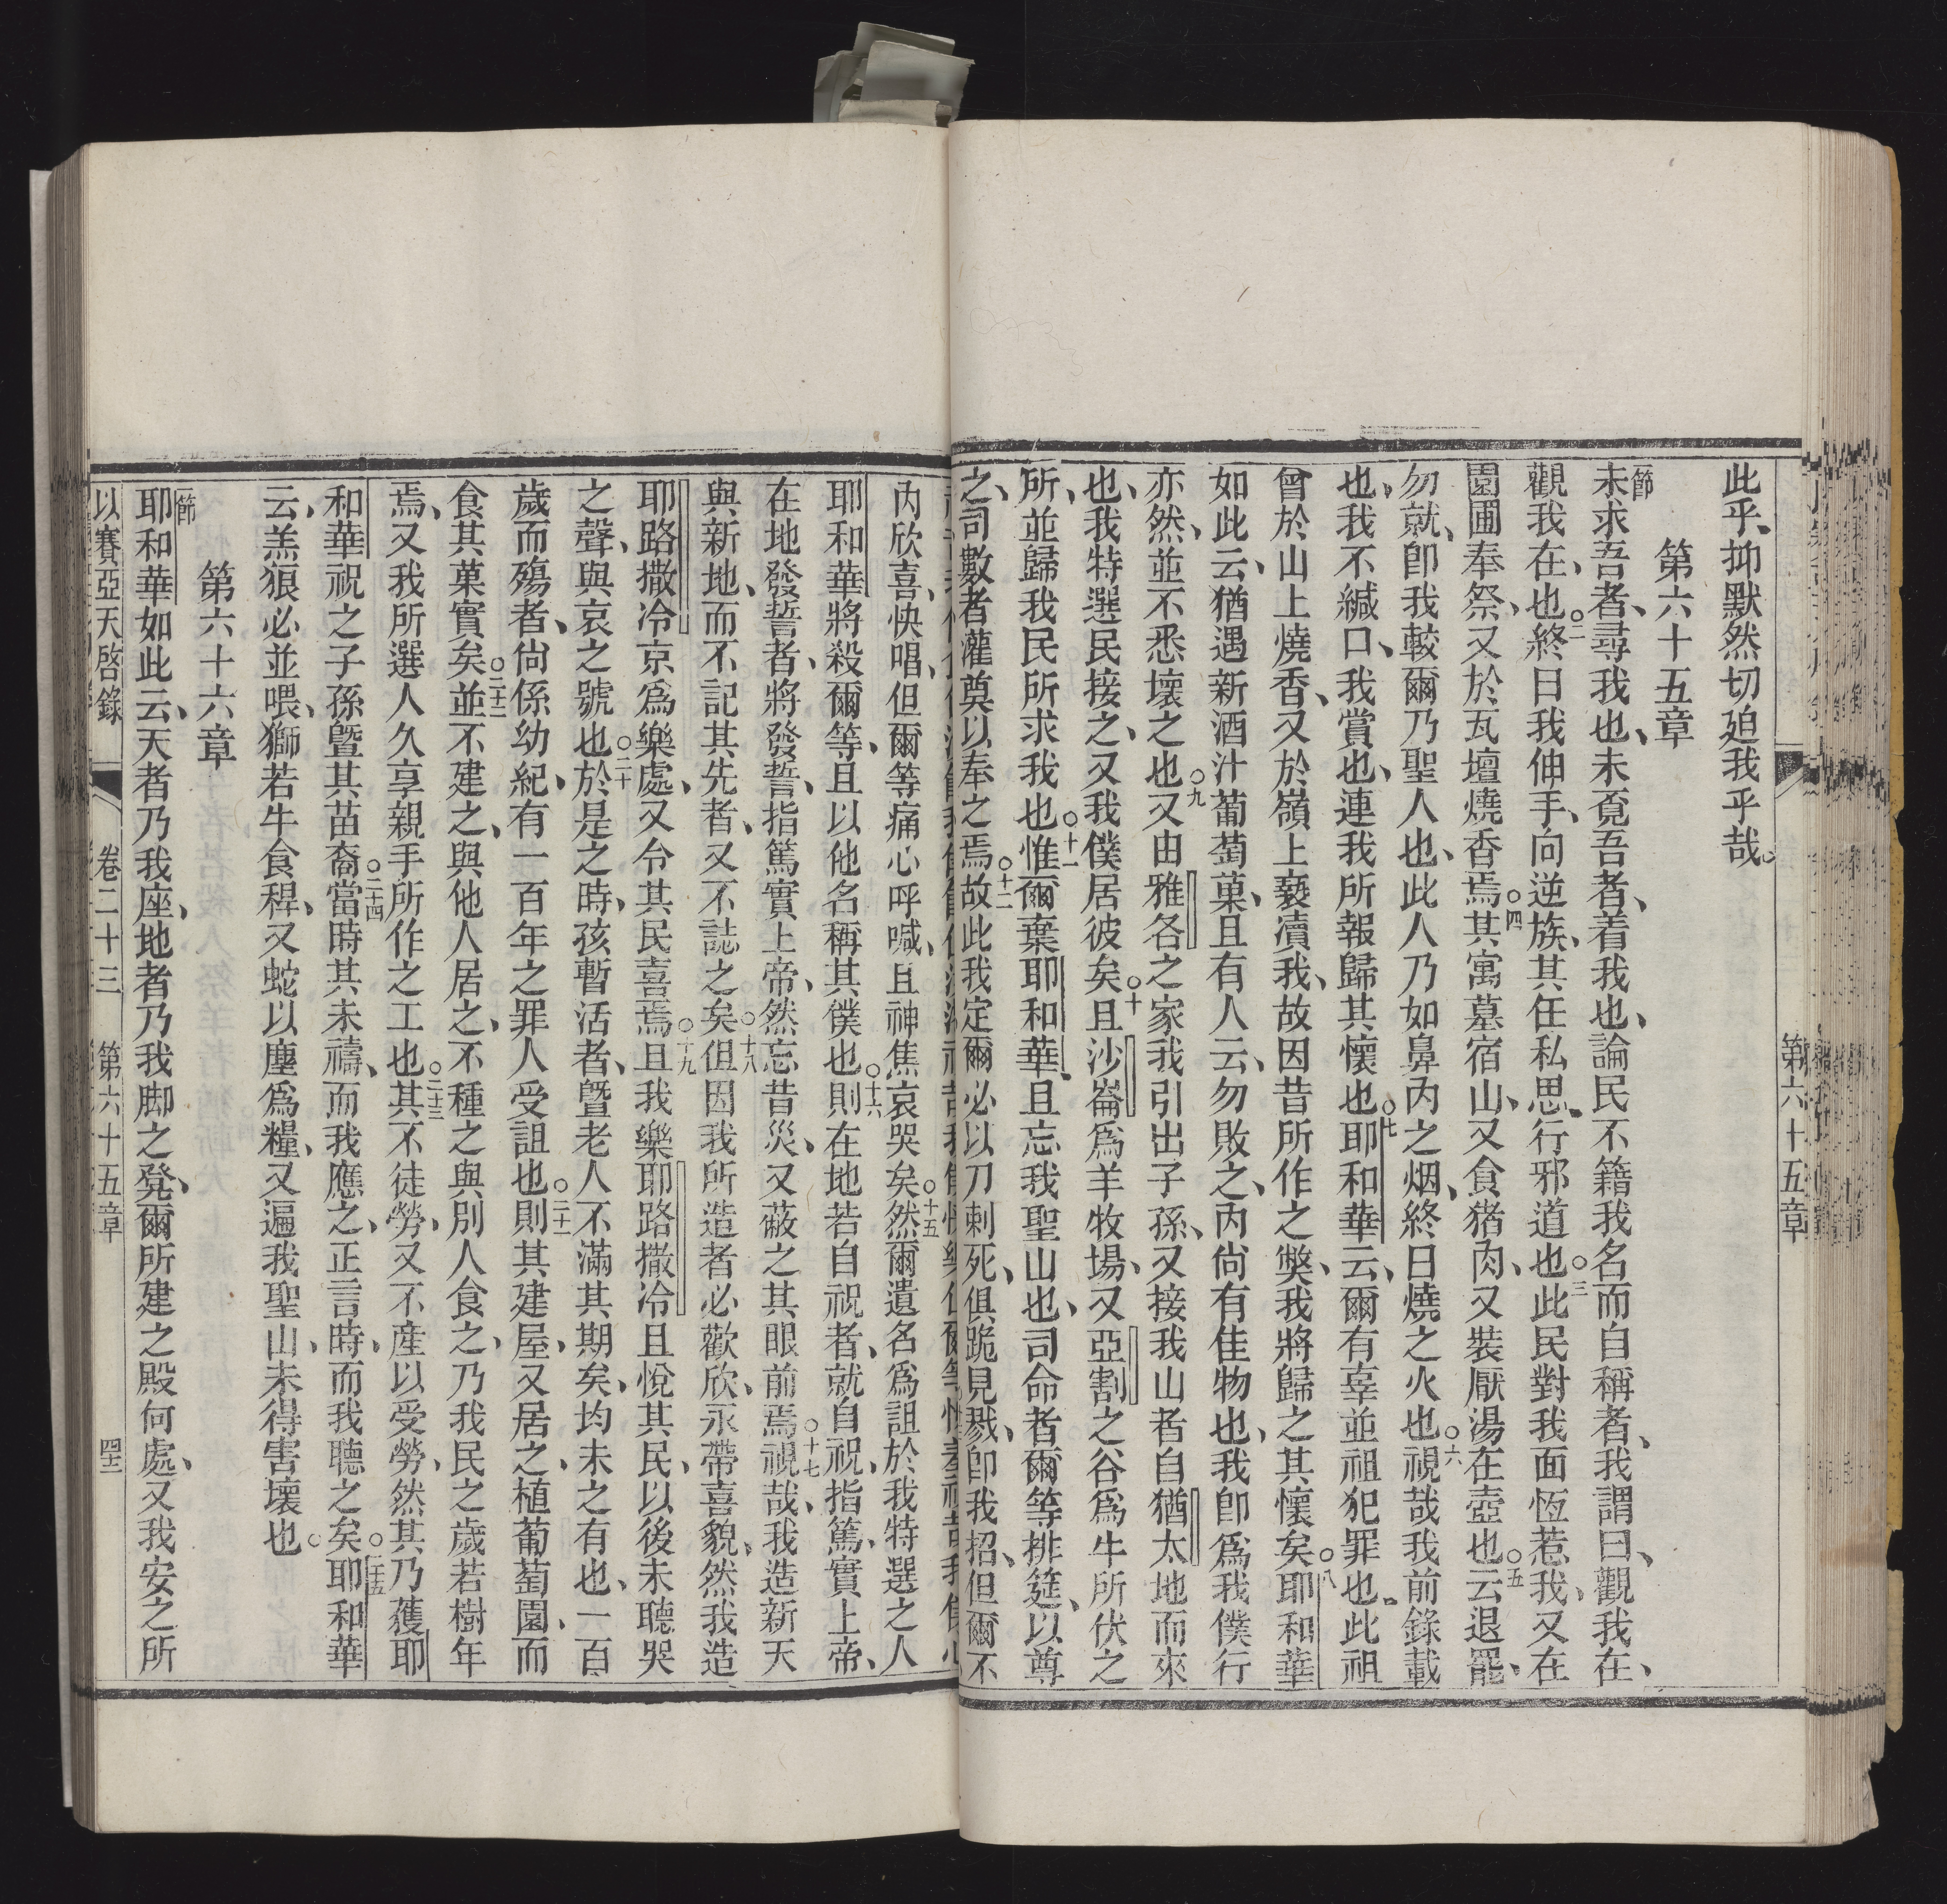 第六十五章
此乎、抑默然切迫我乎哉。
第六十五章
節未求吾者、尋我也、未覔吾者、着我也、論民不籍我名而自稱者、我謂曰、觀我在、
觀我在、也○二終日我伸手、向逆族、其任私思、行邪道也○三此民對我面恆惹我、又在
園圃奉祭、又於瓦壇燒香焉○四其寓墓宿山、又食猪肉、又裝厭湯在壺也○五云退罷、
勿就、卽我較爾乃聖人也、此人乃如鼻內之烟、終日燒之火也○六視哉我前錄載
也、我不緘口、我賞也、連我所報歸其懷也○七耶和華云、爾有辜並祖犯罪也、此祖
曾於山上燒香、又於嶺上褻瀆我、故因昔所作之獘、我將歸之其懷矣○八耶和華
如此云、猶遇新酒汁葡萄菓、且有人云、勿敗之、內尙有佳物也、我卽爲我僕行
亦然、並不悉壞之也○九又由雅各之家我引出子孫、又接我山者自猶太地而來
也、我特選民接之、又我僕居彼矣○十且沙崙爲羊牧場、又亞割之谷爲牛所伏之
所、並歸我民所求我也○十一惟爾棄耶和華、且忘我聖山也、司命者爾等排筵、以尊
之、司數者灌奠以奉之焉○十二故此我定爾必以刀刺死、俱跪見戮、卽我招、但爾不
內欣喜、快唱、但爾等痛心呼喊、且神焦哀哭矣○十五然爾遺名爲詛於我特選之人
耶和華將殺爾等、且以他名稱其僕也○十六則在地若自祝者、就自祝、指篤、實上帝、
在地發誓者、將發誓、指篤實上帝、然忘昔災、又蔽之其眼前焉○十七視哉、我造新天
與新地、而不記其先者、又不誌之矣○十八但因我所造者必歡欣、永帶喜貌、然我造
耶路撒冷京爲樂處、又令其民喜焉○十九且我樂耶路撒冷且悅其民、以後未聽哭
之聲、與哀之號也○二十於是之時、孩暫活者、曁老人不滿其期矣、均未之有也、一百
歲而殤者、尙係幼紀、有一百年之罪人受詛也○二十一則其建屋、又居之、植葡萄園、而
食其菓實矣○二十二並不建之、與他人居之、不種之與別人食之、乃我民之歲若樹年
焉、又我所選人久享親手所作之工也○二十三其不徒勞、又不產以受勞、然其乃蒦耶
和華祝之子孫曁其苗裔○二十四當時其未禱、而我應之、正言時、而我聽之矣○二十五耶和華
云、羔狼必並喂、獅若牛食稈、又蛇以塵爲糧、又遍我聖山、未得害壞也○
第六十六章
節耶和華如此云、天者乃我座、地者乃我脚之凳、爾所建之殿何處、又我安之所
以賽亞天啓錄 卷二十三 第六十五章